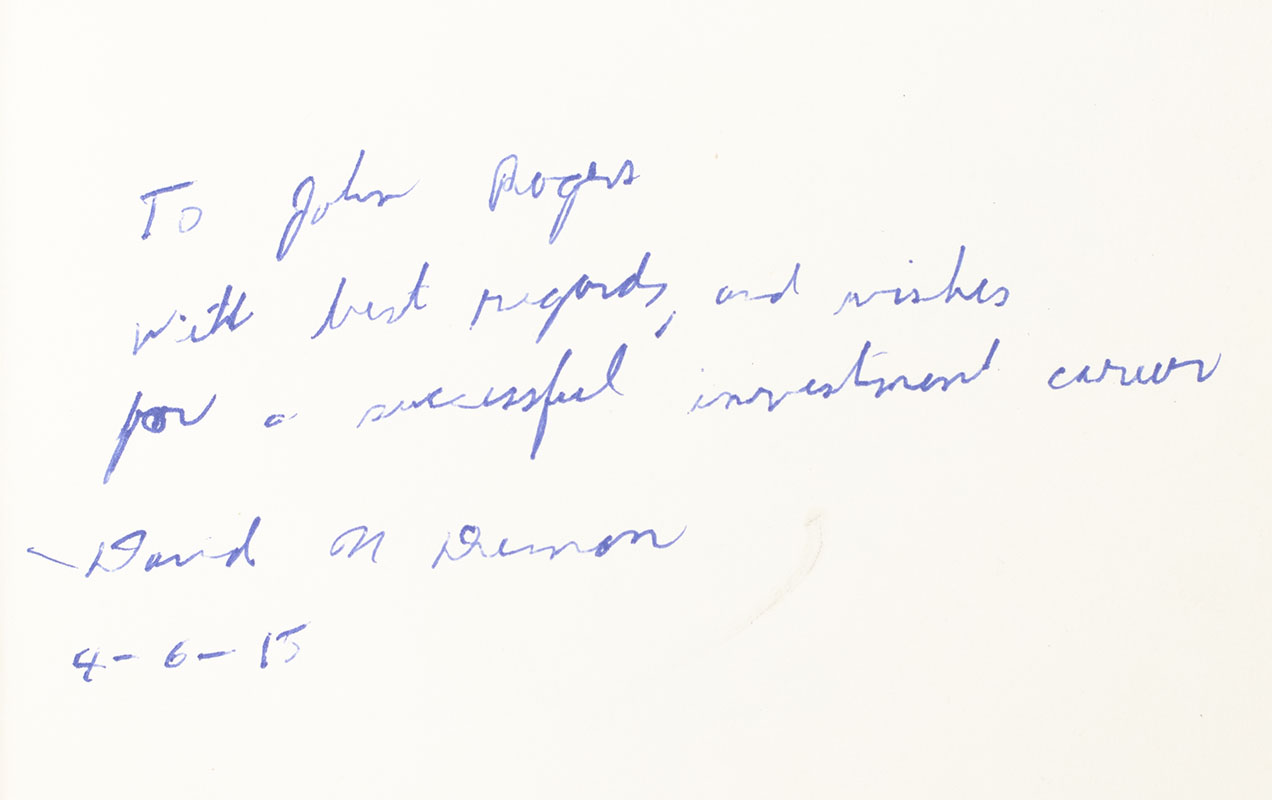 To John Rogers
with best regards, and wishes
for a successful investment career
David N Dreman
4-6-15